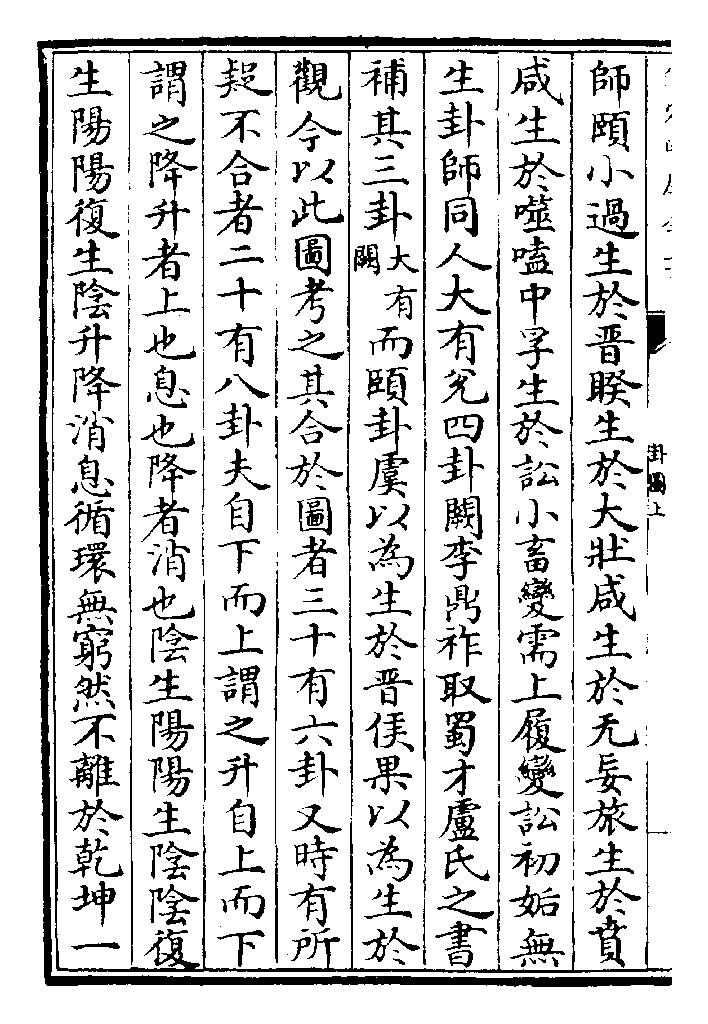 師頤小過生於晋睽生於大壯咸生於无妄旅生於賁
咸生於噬嗑中孚生於訟小畜變需上履變訟初姤無
生卦師同人大有兊四卦闕李鼎祚取蜀才盧氏之書
補其三卦大有闕而頤卦虞以為生於晋侯果以為生於
觀今以此圖考之其合於圖者三十有六卦又時有所
疑不合者二十有八卦夫自下而上謂之升自上而下
謂之降升者上也息也降者消也陰生陽陽生陰陰復
生陽陽復生陰升降消息循環無窮然不離於乾坤一
卦圖上